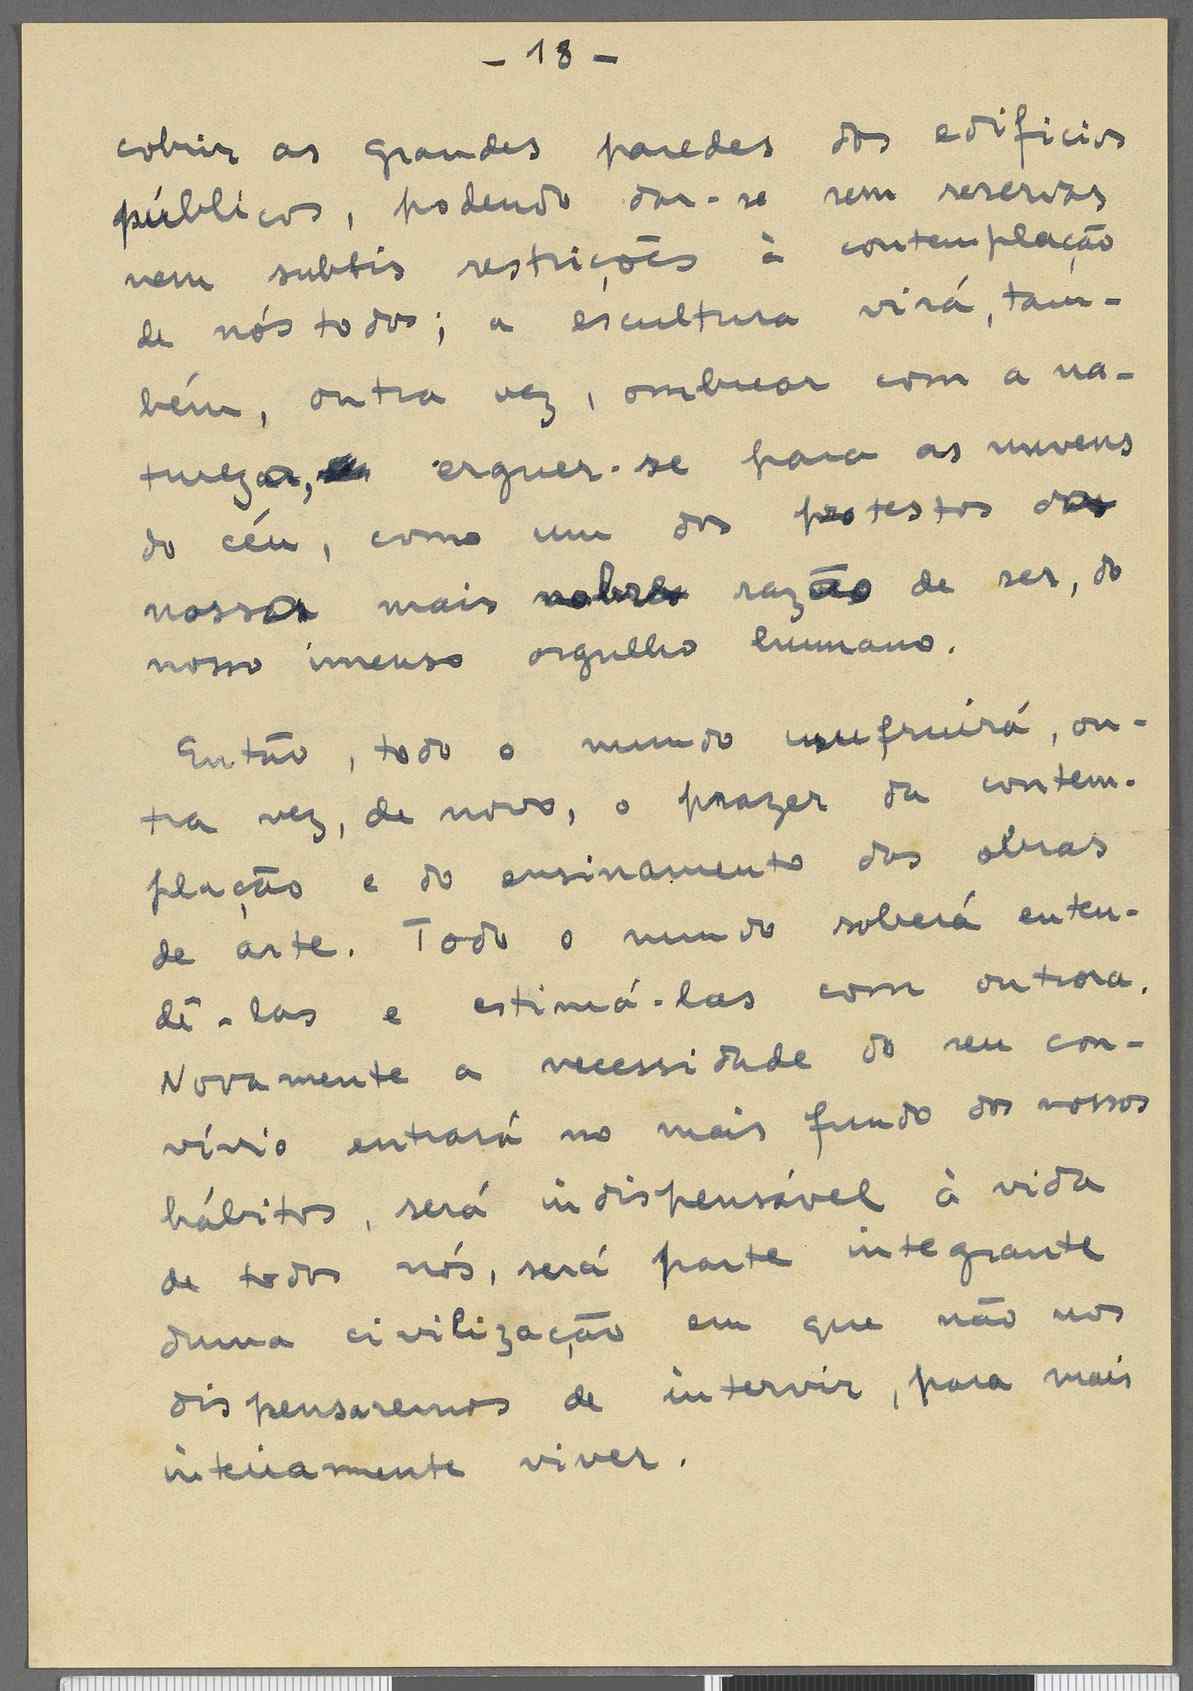 - 18 -
cobrir as grandes paredes dos edificios
públicos, podendo dar-se sem reservas
nem subtis restrições à contemplação
de nós todos; a escultura virá, tam-
bém, outra vez, ombrear com a na-
tureza, erguer-se para as nuvens
do céu, como um dos protestos da
nossa mais nobre razão de ser, do
nosso imenso orgulho humano.
Então, todo o mundo usufruirá, ou-
tra vez, de novo, o prazer da contem-
plação e do ensinamento das obras
de arte. Todo o mundo saberá enten-
dê-las e estimá-las com outrora.
Novamente a necessidade do seu con-
vívio entrará no mais fundo dos nossos
hábitos, será indispensável à vida
de todos nós, será parte integrante
duma civilização em que não nos
dispensaremos de intervir, para mais
inteiramente viver.